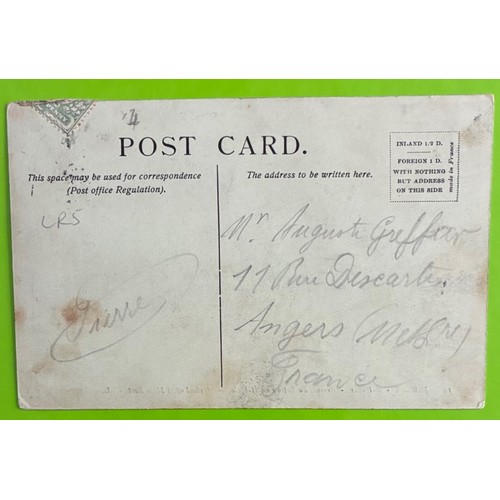 4
POST CARD.
This space may be used for correspondence
(Post office Regulation).
LR5
Pierre
The address to be written here.
INLAND 1/2 D.
FOREIGN 1 D.
WITH NOTHING
BUT ADDRESS
ON THIS SIDE
made in France
Mr. Auguste
11 Rue Descartes
Angers
France